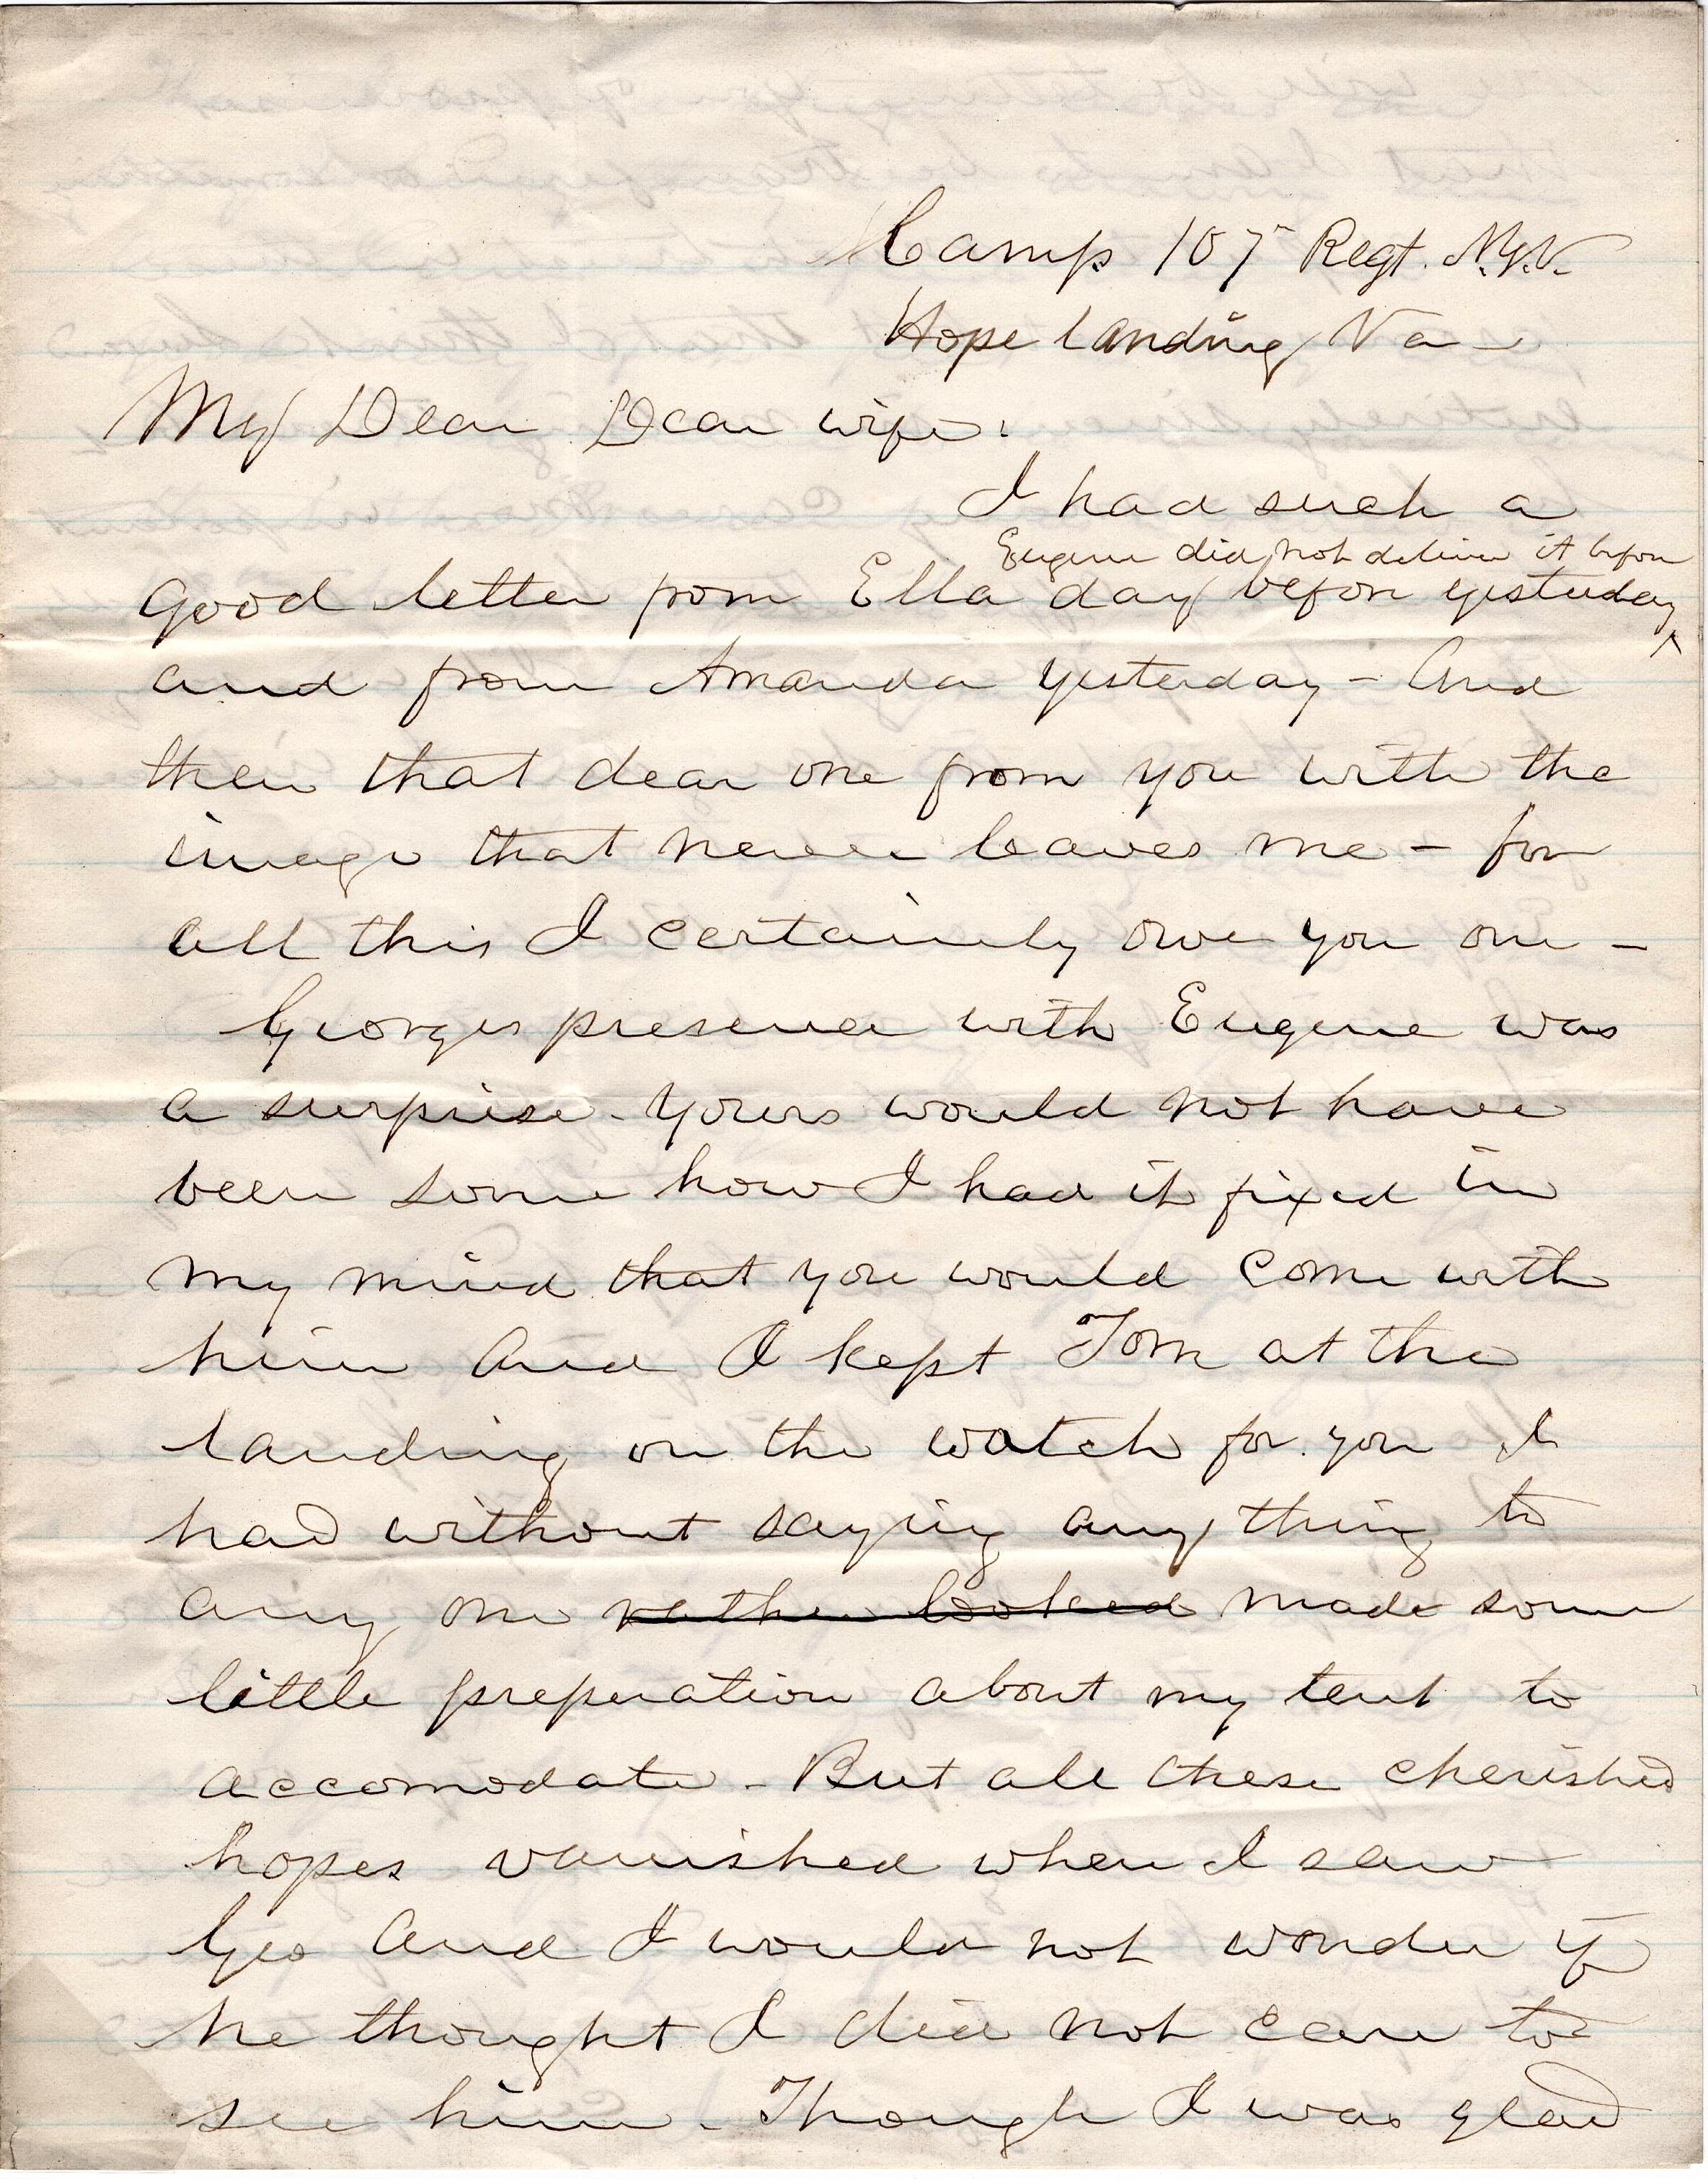 Camp 107 Regt. N.Y.V.
Hope Landing Va
My Dear Dear wife:
I had such a
Eugene did not deliver it before
good letter from Ella day before yesterday
and from Amanda yesterday - And
then that dear one from you with the
image that never leaves me - for
all this I certainly owe you one -
Georges presence with Eugene was
a surprise - yours would not have
been some how I had it fixed in
my mind that you would come with
him And I kept Tom at the
landing on the watch for you I
had without saying any thing to
any one rather looked made some
little preperation about my tent to
accomodate - But all these cherished
hopes vanished when I saw
Geo And I would not wonder if
he thought I did not care to
see him - Though I was glad